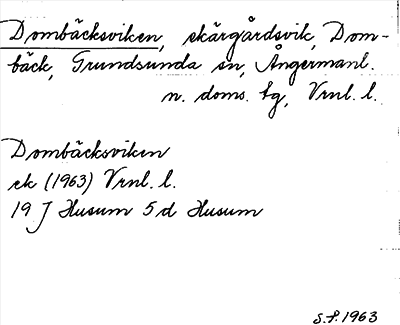 Dombäcksviken, skärgårdsvik, Dom-
bäck, Grundsunda sn, Ångermanl.
n. doms. tg, Vrnl. l.
Dombäcksviken
ek (1963) Vrnl. l.
19 J Husum 5 d Husum
S.f. 1963